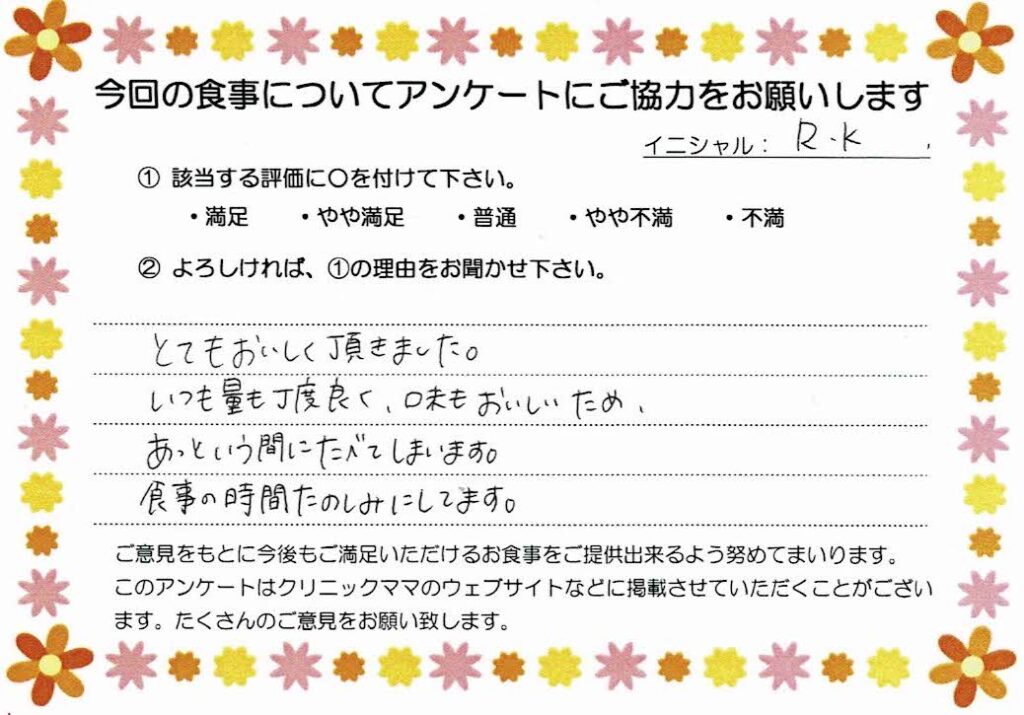 今回の食事についてアンケートにご協力をお願いします
イニシャル： R.K
① 該当する評価に〇を付けて下さい。
・満足 ・やや満足 ・普通 ・やや不満 ・不満
② よろしければ、①の理由をお聞かせ下さい。
とてもおいしく頂きました。
いつも量も丁度良く、味もおいしいため、
あっという間にたべてしまいます。
食事の時間たのしみにしてます。
ご意見をもとに今後もご満足いただけるお食事をご提供出来るよう努めてまいります。
このアンケートはクリニックママのウェブサイトなどに掲載させていただくことがござい
ます。たくさんのご意見をお願い致します。